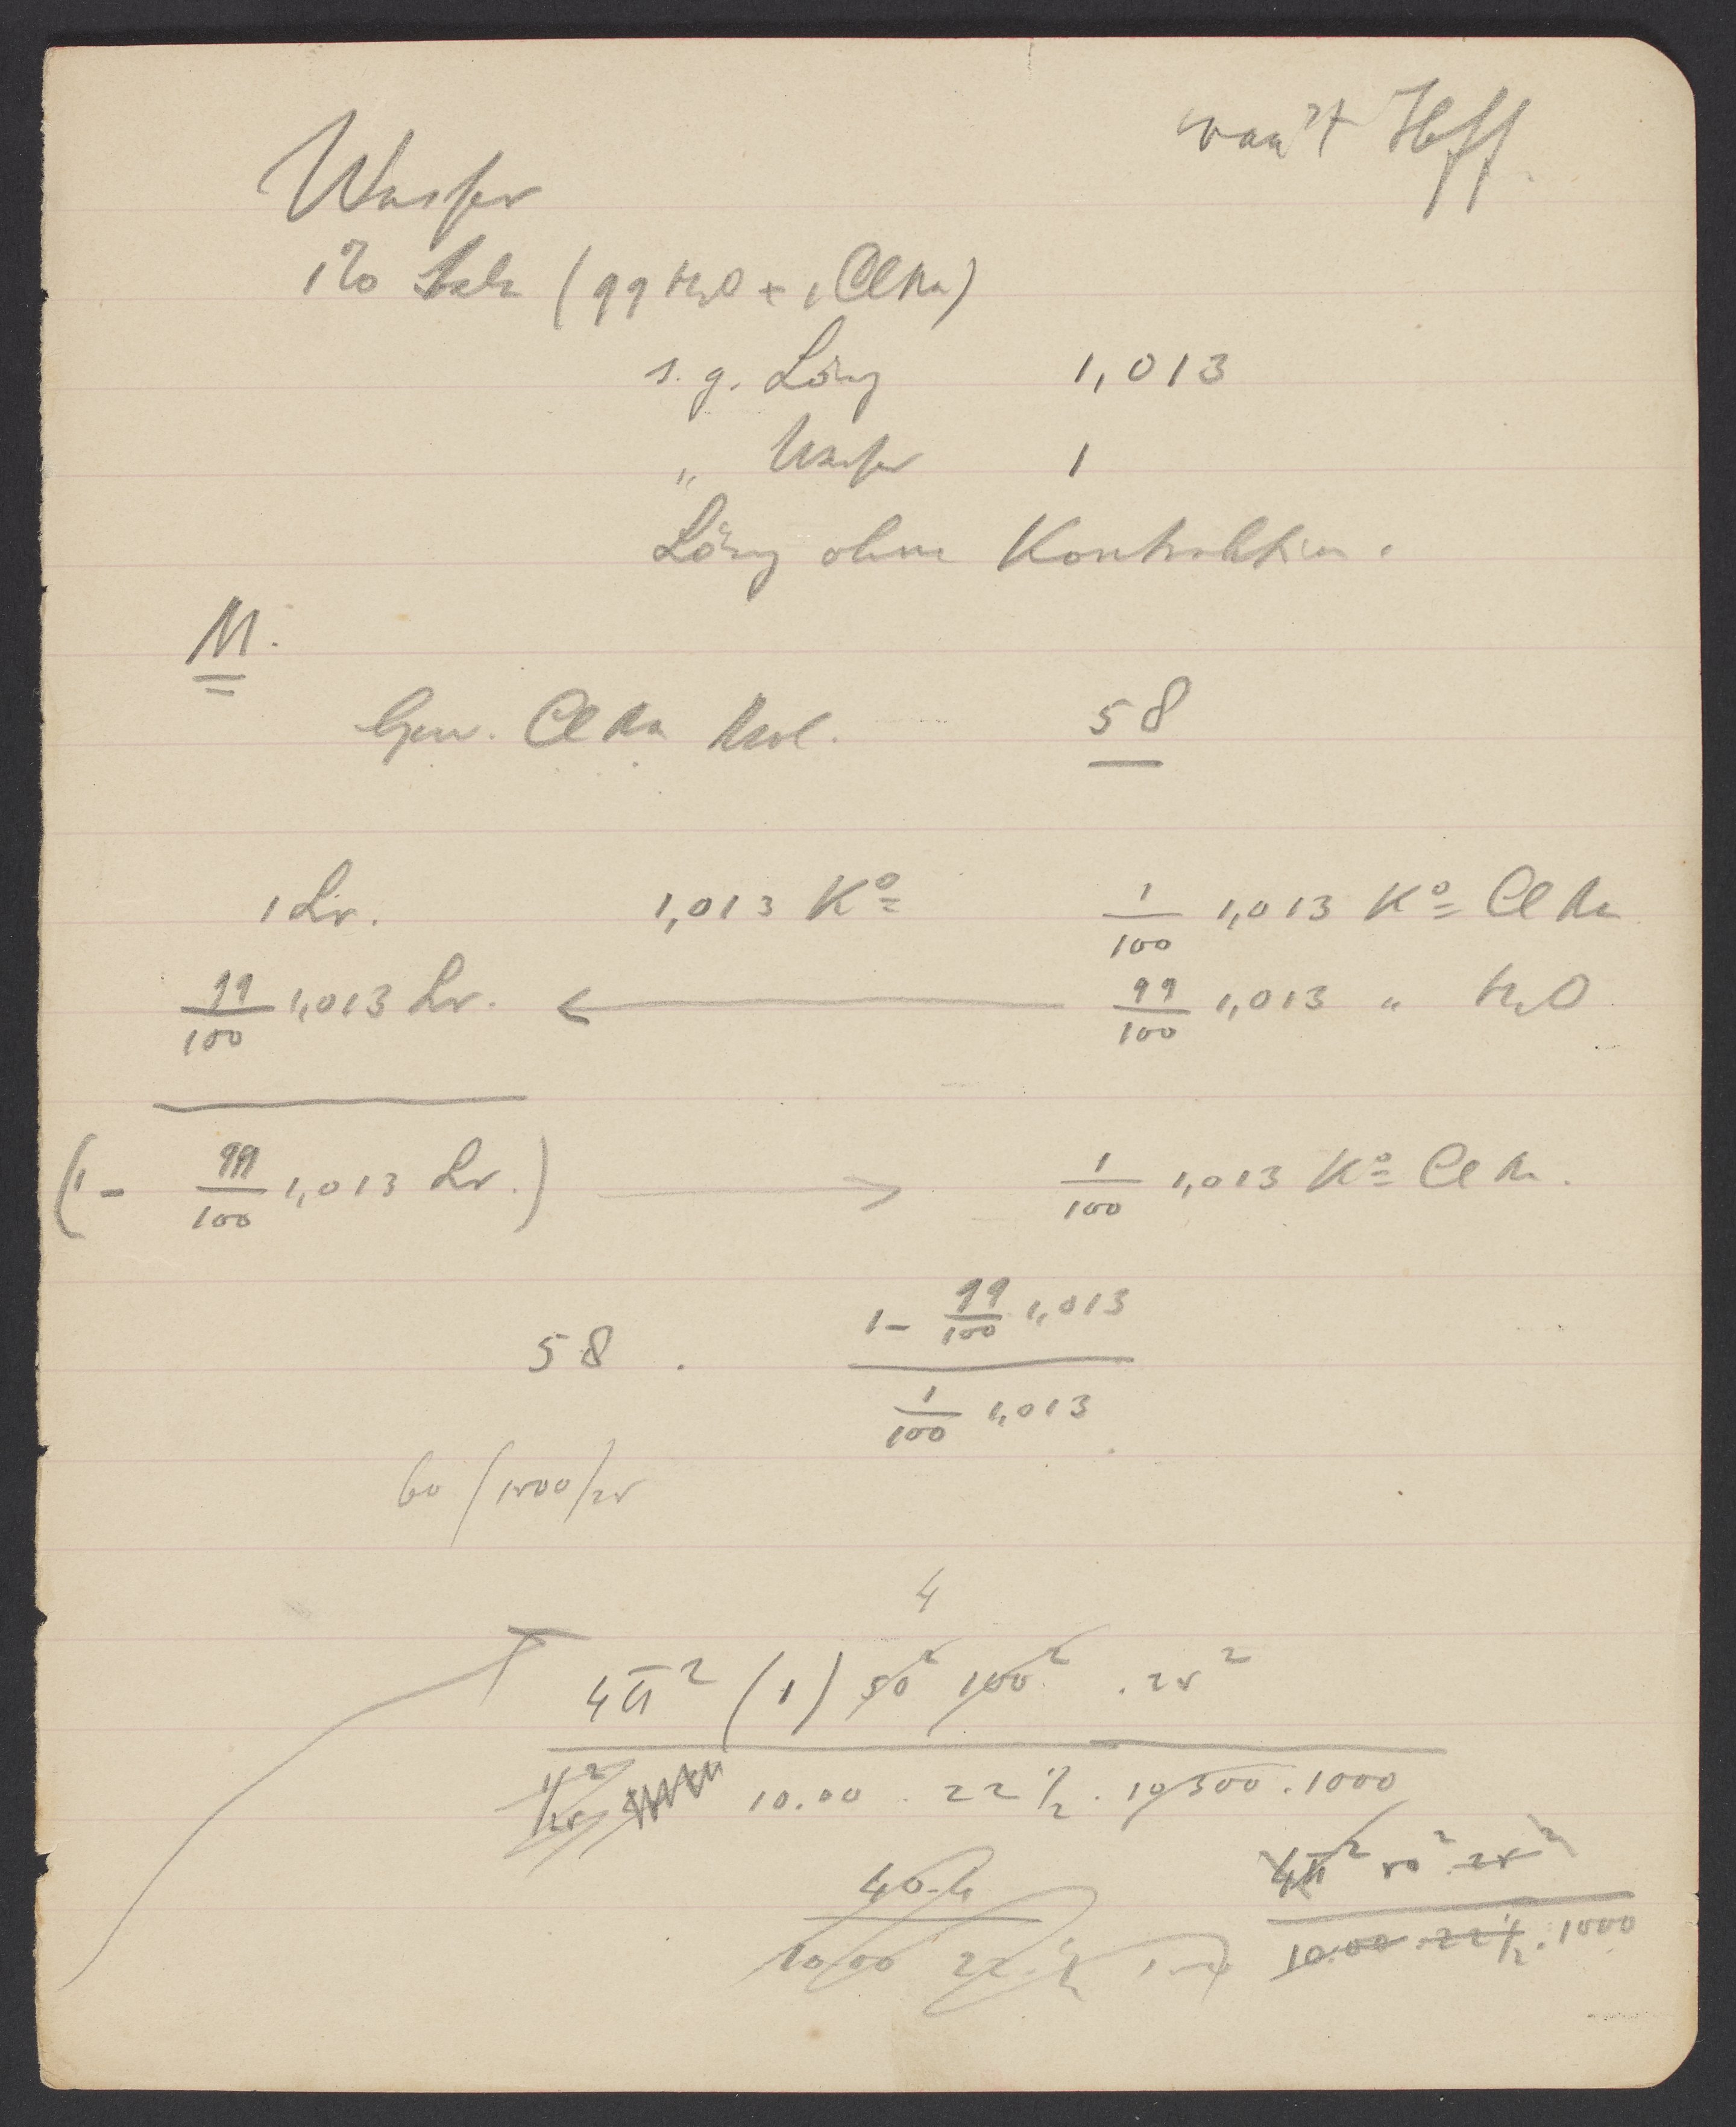 van't Hoff.
Wasser
1% Salz (99 H2O + 1 ClNa)
s. g. Lösng 1,013
" Wasser 1
Lösng ohne Kontraktion.
M.
Gew. ClNa Mol. 58
1 Lr. 1,013 Ko 1/100 1,013 Ko ClNa
99/100 1,013 Lr. ← 99/100 1,013 " H2O
(1 - 99/100 1,013 Lr.) → 1/100 1,013 Ko ClNa.
58 . (1 - 99/100 1,013) / (1/100 1,013)
60/1500/25
4
4π² (1) 50² 100² . 25²
10.00 . 22 1/2 . 10300 . 1000
40.4 4π² 50² 25²
10.00 22 1/2 10.00 22 1/2 . 1000